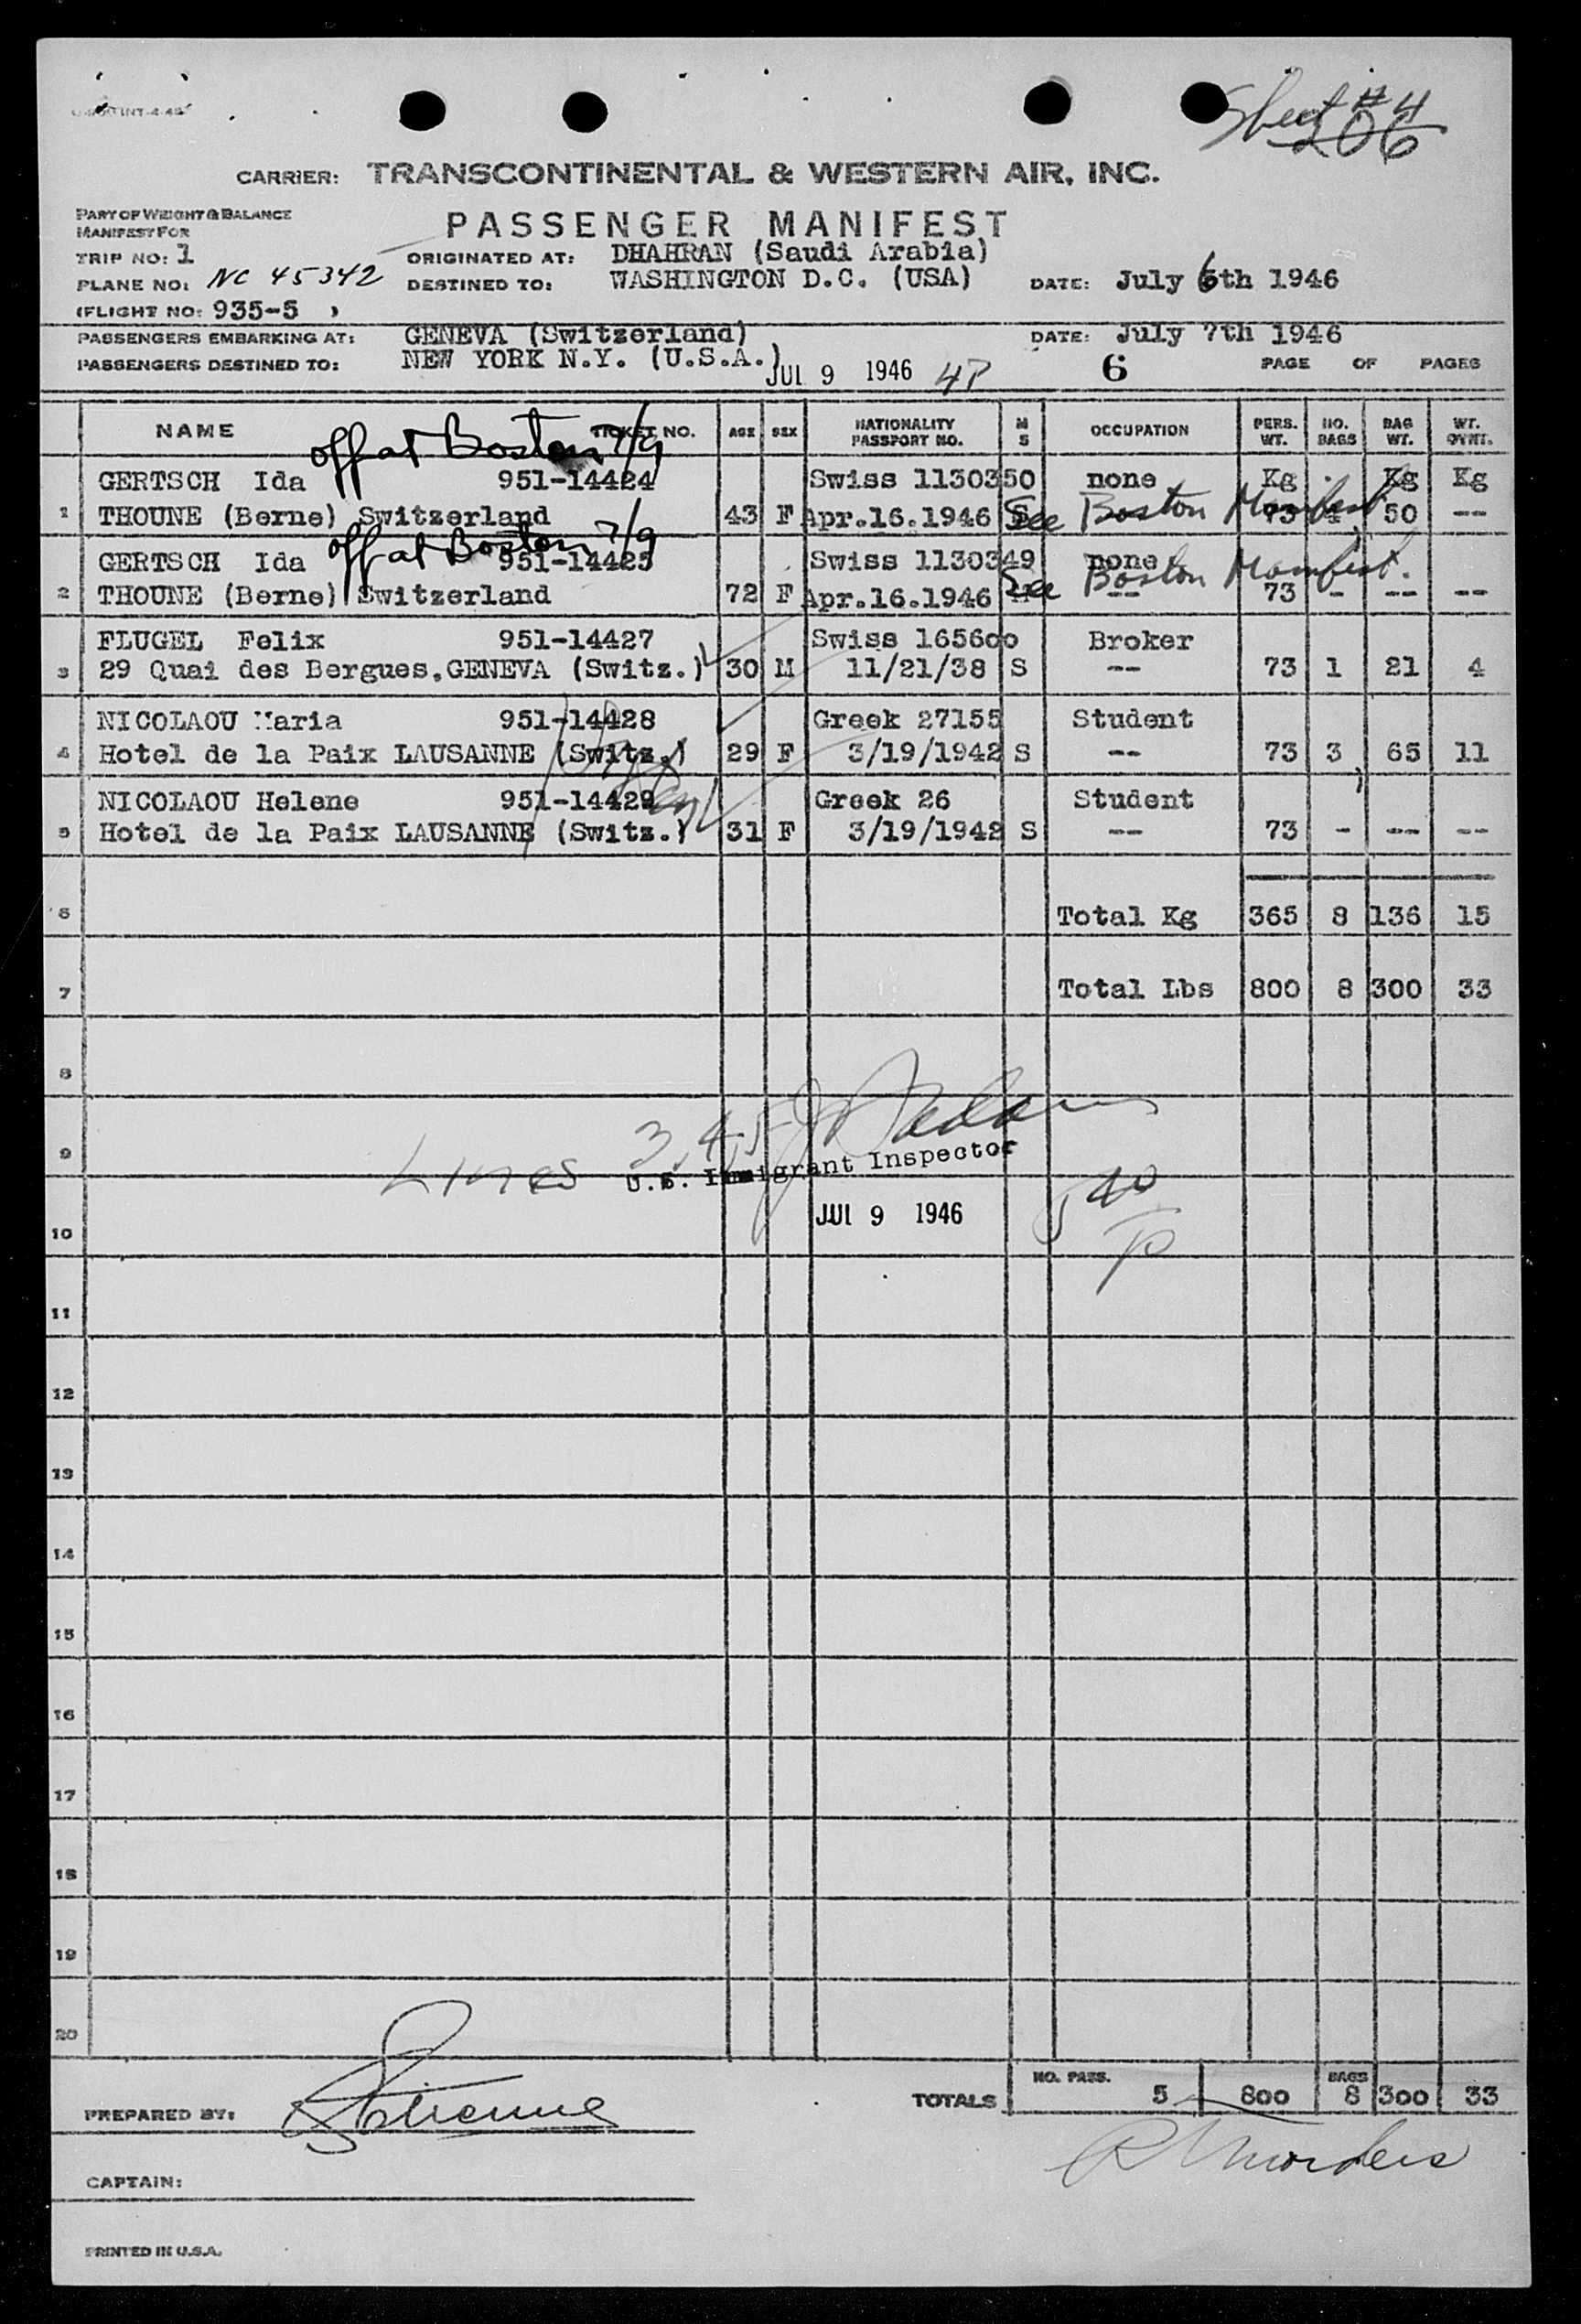 Sheet #4
206
CARRIER: TRANSCONTINENTAL & WESTERN AIR, INC.
PART OF WEIGHT & BALANCE
MANIFEST FOR
PASSENGER MANIFEST
TRIP NO: 1 ORIGINATED AT: DHAHRAN (Saudi Arabia)
PLANE NO: NC 45342 DESTINED TO: WASHINGTON D.C. (USA) DATE: July 6th 1946
(FLIGHT NO: 935-5 )
PASSENGERS EMBARKING AT: GENEVA (Switzerland) DATE: July 7th 1946
PASSENGERS DESTINED TO: NEW YORK N.Y. (U.S.A.) JUL 9 1946 4P 6 PAGE OF PAGES
NAME TICKET NO. AGE SEX NATIONALITY PASSPORT NO. M S OCCUPATION PERS. WT. NO. BAGS BAG WT. WT. OVWT.
off at Boston 7/9
GERTSCH Ida 951-14424 Swiss 1130350 none Kg Kg Kg
1 THOUNE (Berne) Switzerland 43 F Apr.16.1946 S 73 4 50 --
See Boston Manifest
off at Boston 7/9
GERTSCH Ida 951-14425 Swiss 1130349 none
See Boston Manifest.
2 THOUNE (Berne) Switzerland 72 F Apr.16.1946 -- 73 - -- --
FLUGEL Felix 951-14427 Swiss 165600 Broker
3 29 Quai des Bergues.GENEVA (Switz.) 30 M 11/21/38 S -- 73 1 21 4
NICOLAOU Maria 951-14428 Greek 27155 Student
4 Hotel de la Paix LAUSANNE (Switz.) 29 F 3/19/1942 S -- 73 3 65 11
NICOLAOU Helene 951-14429 Greek 26 Student
5 Hotel de la Paix LAUSANNE (Switz.) 31 F 3/19/1942 S -- 73 - -- --
6 Total Kg 365 8 136 15
7 Total Lbs 800 8 300 33
8
9
Lines 3,4,5
U.S. Immigrant Inspector
JUL 9 1946
10
11
12
13
14
15
16
17
18
19
20
TOTALS NO. PASS. 5 800 BAGS 8 300 33
PREPARED BY:
CAPTAIN:
PRINTED IN U.S.A.